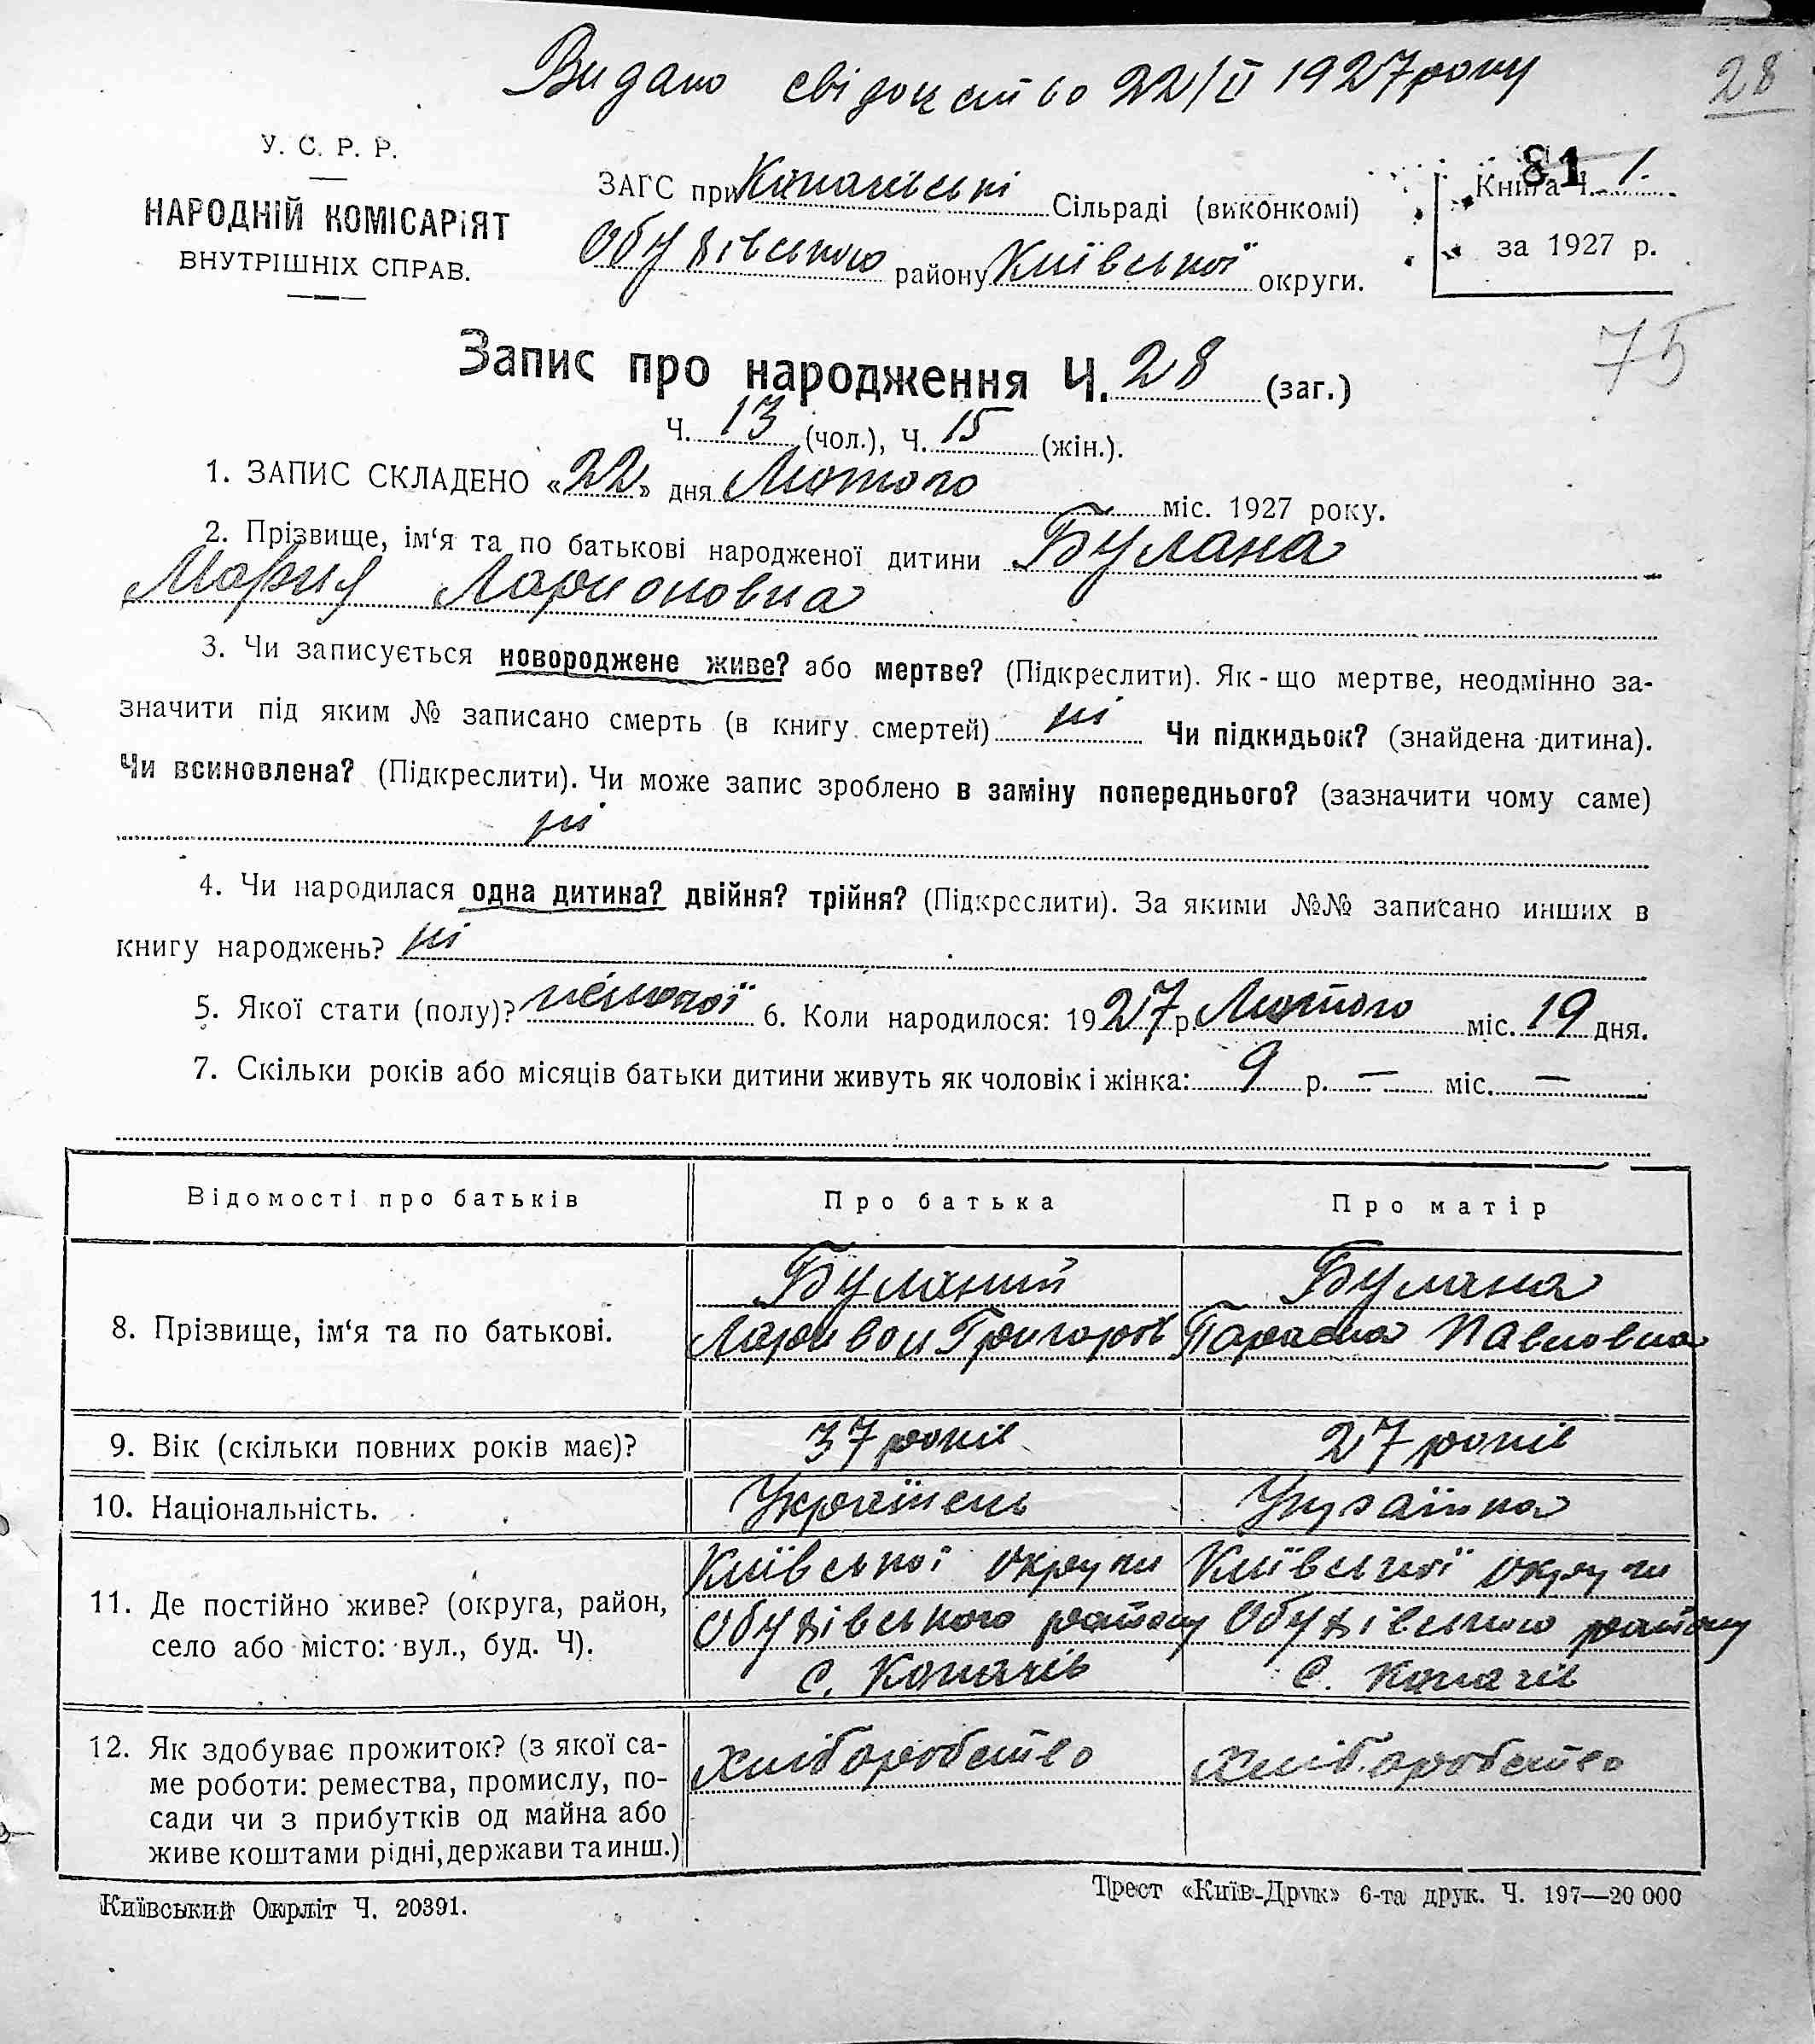 Видано свідоцтво 22/II 1927 року
28
У. С. Р. Р.
НАРОДНІЙ КОМІСАРІЯТ
ВНУТРІШНІХ СПРАВ.
ЗАГС при Копачівські Сільраді (виконкомі)
Обухівського району Київської округи.
81
Книга Ч. 1.
за 1927 р.
75
Запис про народження Ч. 28 (заг.)
Ч. 13 (чол.), Ч. 15 (жін.).
1. ЗАПИС СКЛАДЕНО «22» дня Лютого міс. 1927 року.
2. Прізвище, ім‘я та по батькові народженої дитини Булана
Мария Ларионовна
3. Чи записується новороджене живе? або мертве? (Підкреслити). Як-що мертве, неодмінно за-
значити під яким № записано смерть (в книгу смертей) ні Чи підкидьок? (знайдена дитина).
Чи всиновлена? (Підкреслити). Чи може запис зроблено в заміну попереднього? (зазначити чому саме)
ні
4. Чи народилася одна дитина? двійня? трійня? (Підкреслити). За якими №№ записано инших в
книгу народжень? ні
5. Якої стати (полу)? жіночої 6. Коли народилося: 1927 р. Лютого міс. 19 дня.
7. Скільки років або місяців батьки дитини живуть як чоловік і жінка: 9 р. — міс. —
Відомості про батьків Про батька Про матір
8. Прізвище, ім‘я та по батькові.
Буланий Булана
Ларивон Григоров Параска Павловна
9. Вік (скільки повних років має)? 37 років 27 років
10. Національність. Українець Українка
11. Де постійно живе? (округа, район,
село або місто: вул., буд. Ч).
Київської округи Київської округи
Обухівського району Обухівського району
С. Копачів С. Копачів
12. Як здобуває прожиток? (з якої са-
ме роботи: ремества, промислу, по-
сади чи з прибутків од майна або
живе коштами рідні, держави та инш.)
хліборобство хліборобство
Київський Окрліт Ч. 20391.
Трест «Київ-Друк» 6-та друк. Ч. 197—20 000